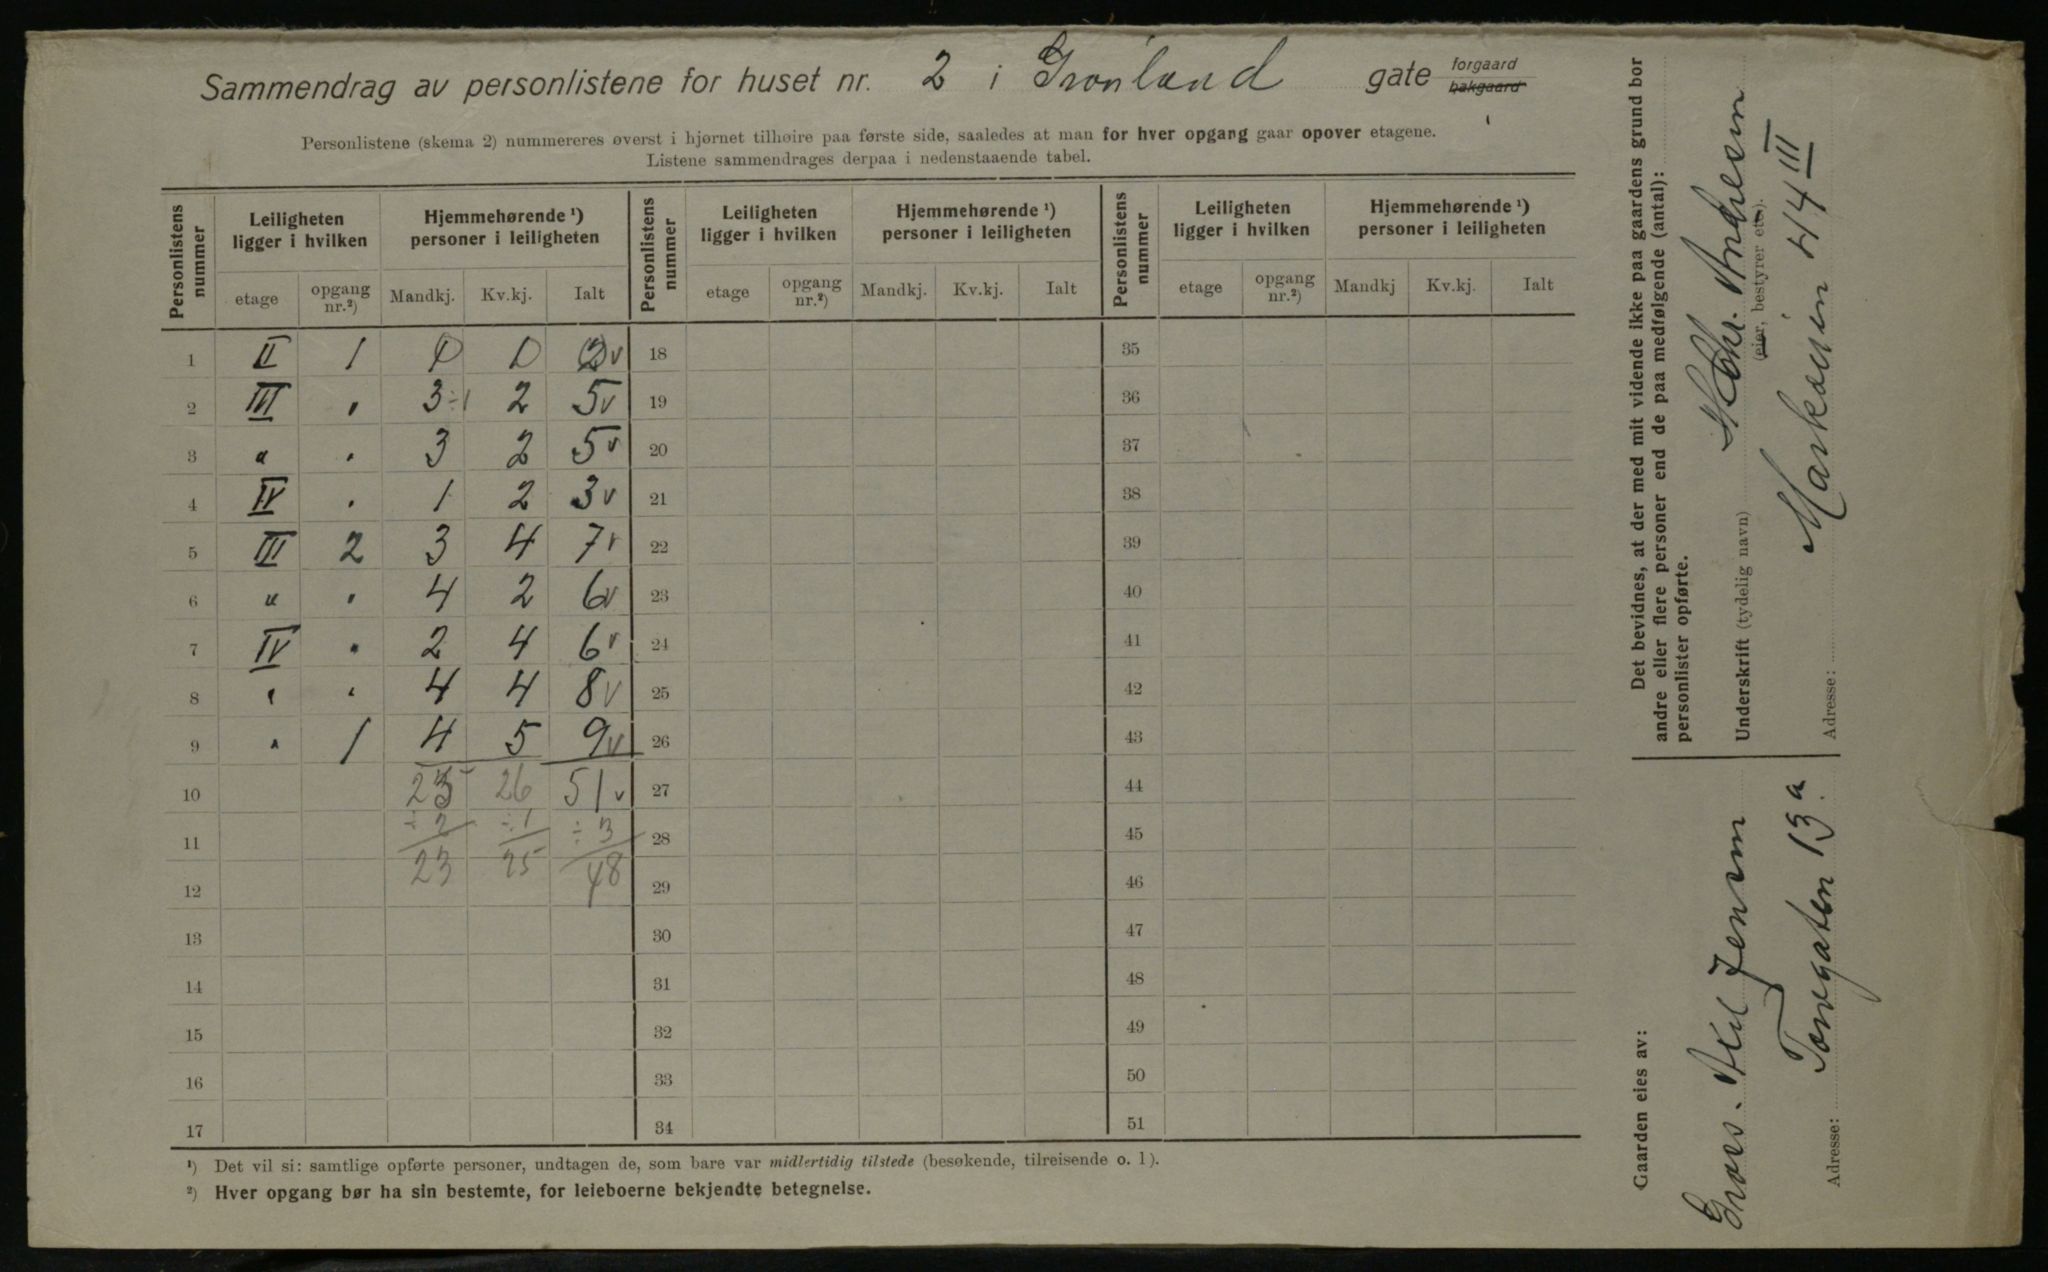 Sammendrag av personlistene for huset nr. 2 i Grønland gate forgaard bakgaard
Personlistene (skema 2) nummereres øverst i hjørnet tilhøire paa første side, saaledes at man for hver opgang gaar opover etagene.
Listene sammendrages derpaa i nedenstaaende tabel.
Personlistens nummer | Leiligheten ligger i hvilken | Hjemmehørende ¹) personer i leiligheten | Personlistens nummer | Leiligheten ligger i hvilken | Hjemmehørende ¹) personer i leiligheten | Personlistens nummer | Leiligheten ligger i hvilken | Hjemmehørende ¹) personer i leiligheten
etage | opgang nr.²) | Mandkj. | Kv.kj. | Ialt | etage | opgang nr.²) | Mandkj. | Kv.kj. | Ialt | etage | opgang nr.²) | Mandkj | Kv.kj. | Ialt
1 II 1 1 1 2 v 18 35
2 III " 3 ÷1 2 5 v 19 36
3 " " 3 2 5 v 20 37
4 IV " 1 2 3 v 21 38
5 III 2 3 4 7 v 22 39
6 " " 4 2 6 v 23 40
7 IV " 2 4 6 v 24 41
8 " " 4 4 8 v 25 42
9 " 1 4 5 9 v 26 43
10 25 26 51 v 27 44
11 ÷2 ÷1 ÷3 28 45
12 23 25 48 29 46
13 30 47
14 31 48
15 32 49
16 33 50
17 34 51
¹) Det vil si: samtlige opførte personer, undtagen de, som bare var midlertidig tilstede (besøkende, tilreisende o. l).
²) Hver opgang bør ha sin bestemte, for leieboerne bekjendte betegnelse.
Det bevidnes, at der med mit vidende ikke paa gaardens grund bor
andre eller flere personer end de paa medfølgende (antal):
personlister opførte.
Underskrift (tydelig navn) Chr. Andresen
(eier, bestyrer etc).
Adresse: Markveien 44 III
Gaarden eies av:
Gross. Axel Jensen
Adresse: Torvgaten 13 a